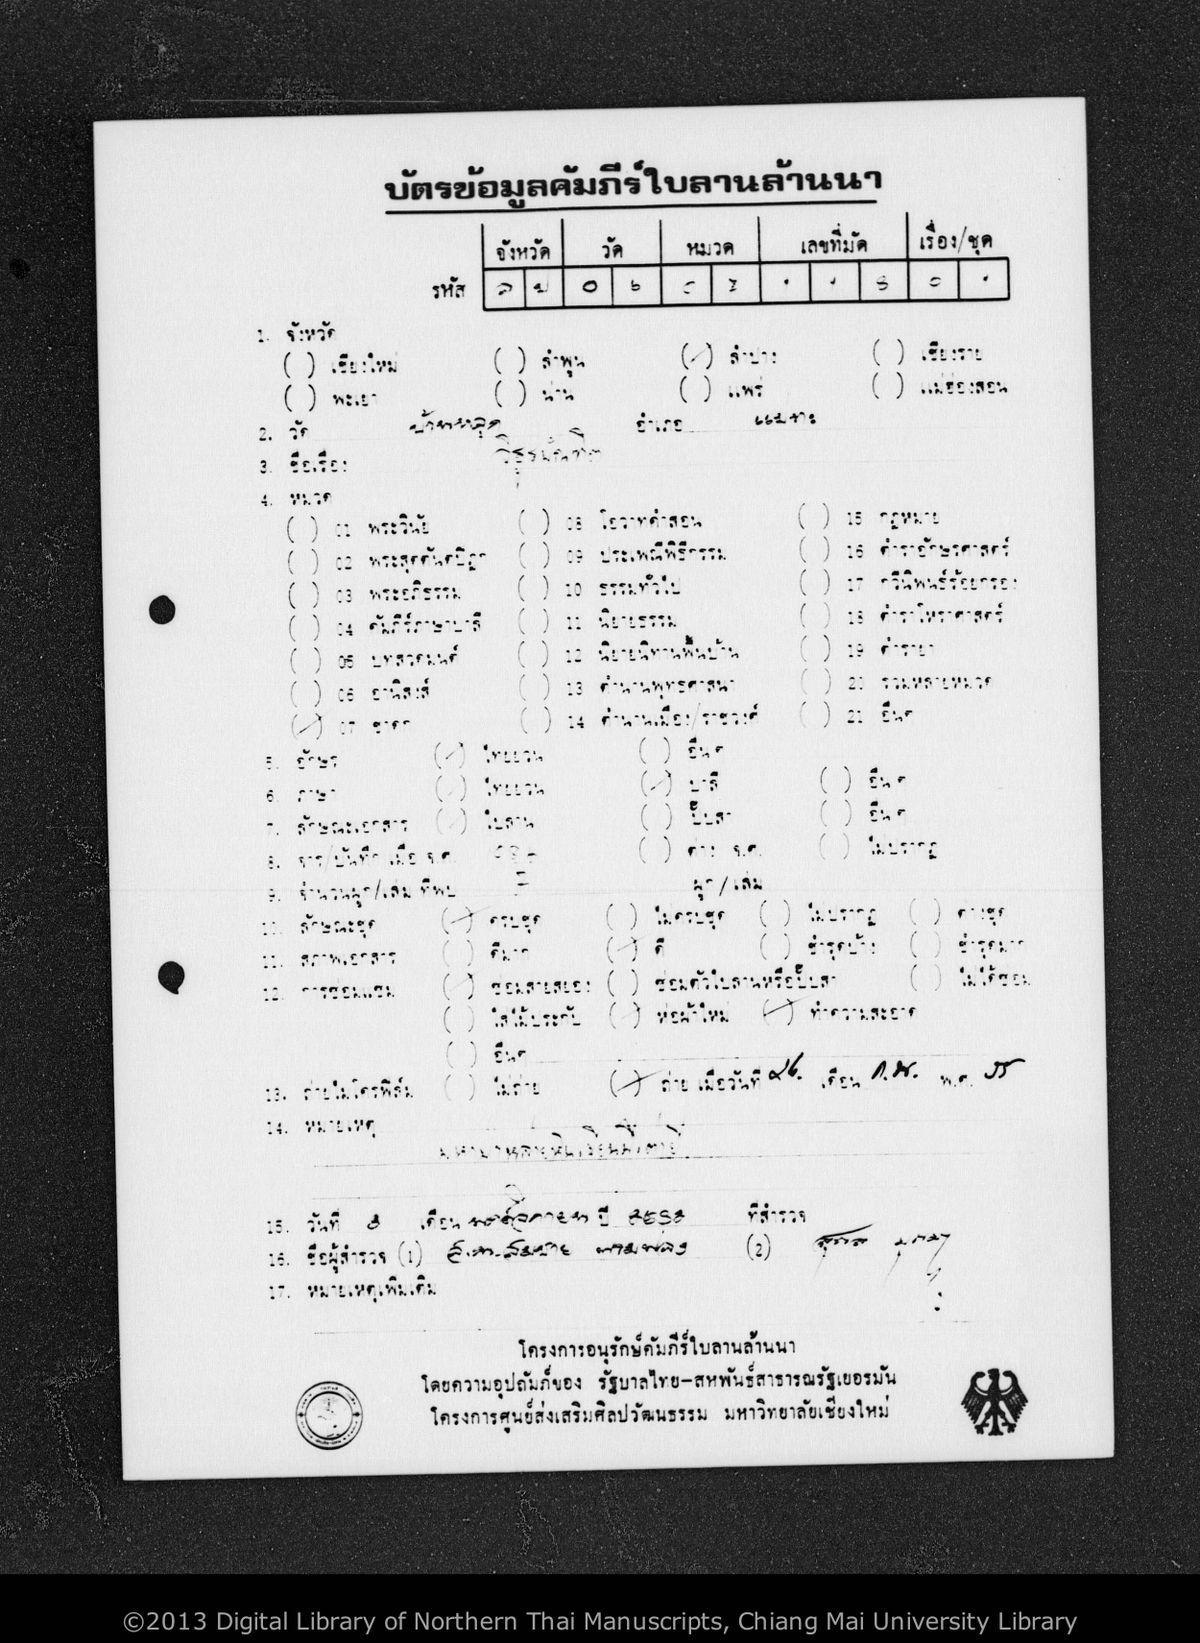 บัตรข้อมูลคัมภีร์ใบลานล้านนา
จังหวัด วัด หมวด เลขที่มัด เรื่อง/ชุด
รหัส
1. จังหวัด
( ) เชียงใหม่ ( ) ลำพูน (✓) ลำปาง ( ) เชียงราย
( ) พะเยา ( ) น่าน ( ) แพร่ ( ) แม่ฮ่องสอน
2. วัด บ้านหลุก อำเภอ แม่ทะ
3. ชื่อเรื่อง วิธูรบัณฑิต
4. หมวด
( ) 01 พระวินัย ( ) 08 โอวาทคำสอน ( ) 15 กฎหมาย
( ) 02 พระสุตตันตปิฎก ( ) 09 ประเพณีพิธีกรรม ( ) 16 ตำราอักษรศาสตร์
( ) 03 พระอภิธรรม ( ) 10 ธรรมทั่วไป ( ) 17 กวีนิพนธ์ร้อยกรอง
( ) 04 คัมภีร์ภาษาบาลี ( ) 11 นิยายธรรม ( ) 18 ตำราโหราศาสตร์
( ) 05 บทสวดมนต์ ( ) 12 นิยายนิทานพื้นบ้าน ( ) 19 ตำรายา
( ) 06 อานิสงส์ ( ) 13 ตำนานพุทธศาสนา ( ) 20 รวมหลายหมวด
(✓) 07 ชาดก ( ) 14 ตำนานเมือง/ราชวงศ์ ( ) 21 อื่นๆ
5. อักษร (✓) ไทยยวน ( ) อื่นๆ
6. ภาษา (✓) ไทยยวน (✓) บาลี ( ) อื่นๆ
7. ลักษณะเอกสาร (✓) ใบลาน ( ) ปั๊บสา ( ) อื่นๆ
8. จาร/บันทึก เมื่อ จ.ศ. ( ) ต่าง จ.ศ. ( ) ไม่ปรากฏ
9. จำนวนผูก/เล่ม ที่พบ ผูก/เล่ม
10. ลักษณะชุด (✓) ครบชุด ( ) ไม่ครบชุด ( ) ไม่ปรากฏ ( ) ต่างชุด
11. สภาพเอกสาร ( ) ดีมาก (✓) ดี ( ) ชำรุดบ้าง ( ) ชำรุดมาก
12. การซ่อมแซม (✓) ซ่อมสายสยอง ( ) ซ่อมตัวใบลานหรือปั๊บสา ( ) ไม่ได้ซ่อม
( ) ใส่ไม้ประกับ (✓) ห่อผ้าใหม่ (✓) ทำความสะอาด
( ) อื่นๆ
13. ถ่ายไมโครฟิล์ม ( ) ไม่ถ่าย (✓) ถ่าย เมื่อวันที่ ๒๖. เดือน ก.ย. พ.ศ. ๓๓
14. หมายเหตุ
15. วันที่ เดือน พฤศจิกายน ปี ที่สำรวจ
16. ชื่อผู้สำรวจ (1) (2)
17. หมายเหตุเพิ่มเติม
โครงการอนุรักษ์คัมภีร์ใบลานล้านนา
โดยความอุปถัมภ์ของ รัฐบาลไทย-สหพันธ์สาธารณรัฐเยอรมัน
โครงการศูนย์ส่งเสริมศิลปวัฒนธรรม มหาวิทยาลัยเชียงใหม่
©2013 Digital Library of Northern Thai Manuscripts, Chiang Mai University Library